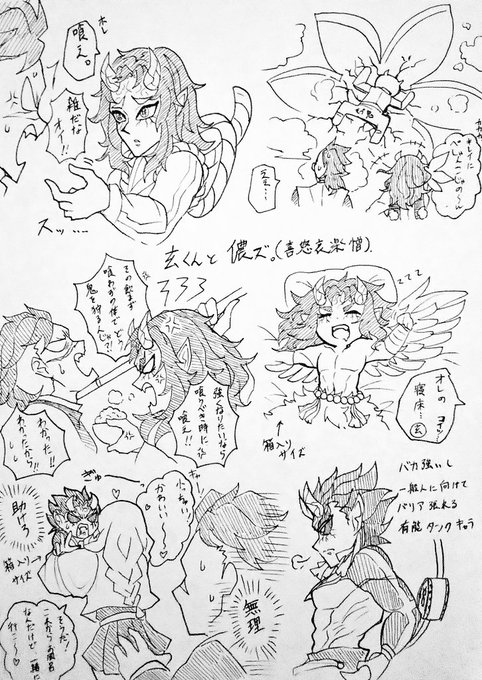 ホレ
喰え。
雑だな
オイ!!
スッ……
キレイに
ええ…
玄くんと 儂ズ。(喜怒哀楽憎)
その飲まず
喰わずの体でどう
鬼を狩るん
じゃ!!
強くなりたいなら
喰うべき時に
喰え!!
わかった!!
わかったから!!
zzz
オレの
寝床…
玄
↑
箱入り
サイズ
ぎゅ
小っちゃい
かわいい
助けろ
箱入り→
サイズ
そうだ!
これからお風呂
なんだけど 一緒に
行こ〜♡
無理
バカ強いし
一般人に向けて
バリア張れる
有能タンクキャラ